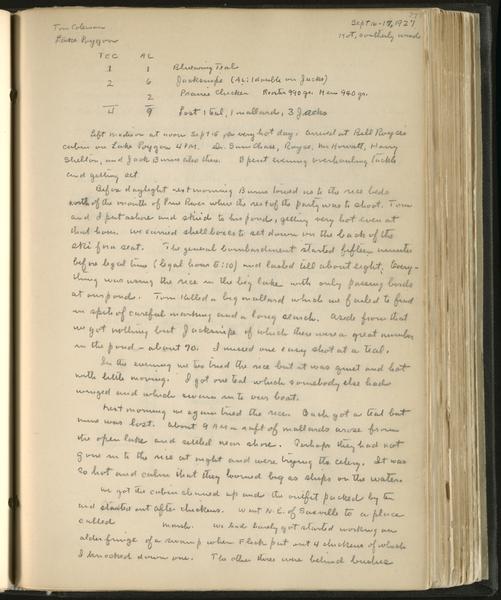 Tom Coleman
Sept 16-17, 1927
Lake Poygan
Hot, southerly wind
TEC AL
1 1 Bluewing Teal
2 6 Jacksnipe (AL: 1 double on Jacks)
2 Prairie Chicken Rooster 990 gr. Hen 940 gr.
4 9 Lost 1 teal, 1 mallards, 3 Jacks
Left Madison at noon Sept 15, a very hot day; arrived at Bill Royce's
cabin on Lake Poygan 4 PM. Dr. Sam Chase, Royce, Mr. Howatt, Harry
Shelton, and Jack Burns also there. Spent evening overhauling tackle
and getting set.
Before daylight next morning Burns towed us to the rice beds
north of the mouth of Pine River where the rest of the party was to shoot. Tom
and I put ashore and skiid to his pond, getting very hot even at
that hour. We carried shell boxes to set down on the back of the
ski for a seat. The general bombardment started fifteen minutes
before legal time (legal hour 5:10) and lasted till about eight. Every-
thing was using the rice in the big lake with only passing birds
at our ponds. Tom killed a big mallard which we failed to find
in spite of careful marking and a long search. Aside from that
we got nothing but Jacksnipe of which there were a great number
in the pond - about 70. I missed one easy shot at a teal.
In the evening we tried the rice but it was quiet and hot
with little moving. I got one teal which somebody else had
winged and which swam in to our boat.
Next morning we again tried the rice. Each got a teal but
mine was lost. About 9 AM a raft of mallards arose from
the open lake and settled near shore. Perhaps they had not
gone in to the rice at night and were trying the celery. It was
so hot and calm that they loomed big as ships on the water.
We got the cabin cleaned up and the outfit packed by ten
and started out after chickens. Went N.E. of to a place
called marsh. We had barely got started working an
alder fringe of a swamp when Flick put out 4 chickens of which
I knocked down one. The other three were behind bushes